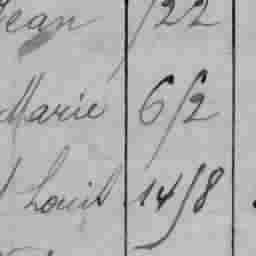 Jean /22
Marie 6/2
Louis 14/8